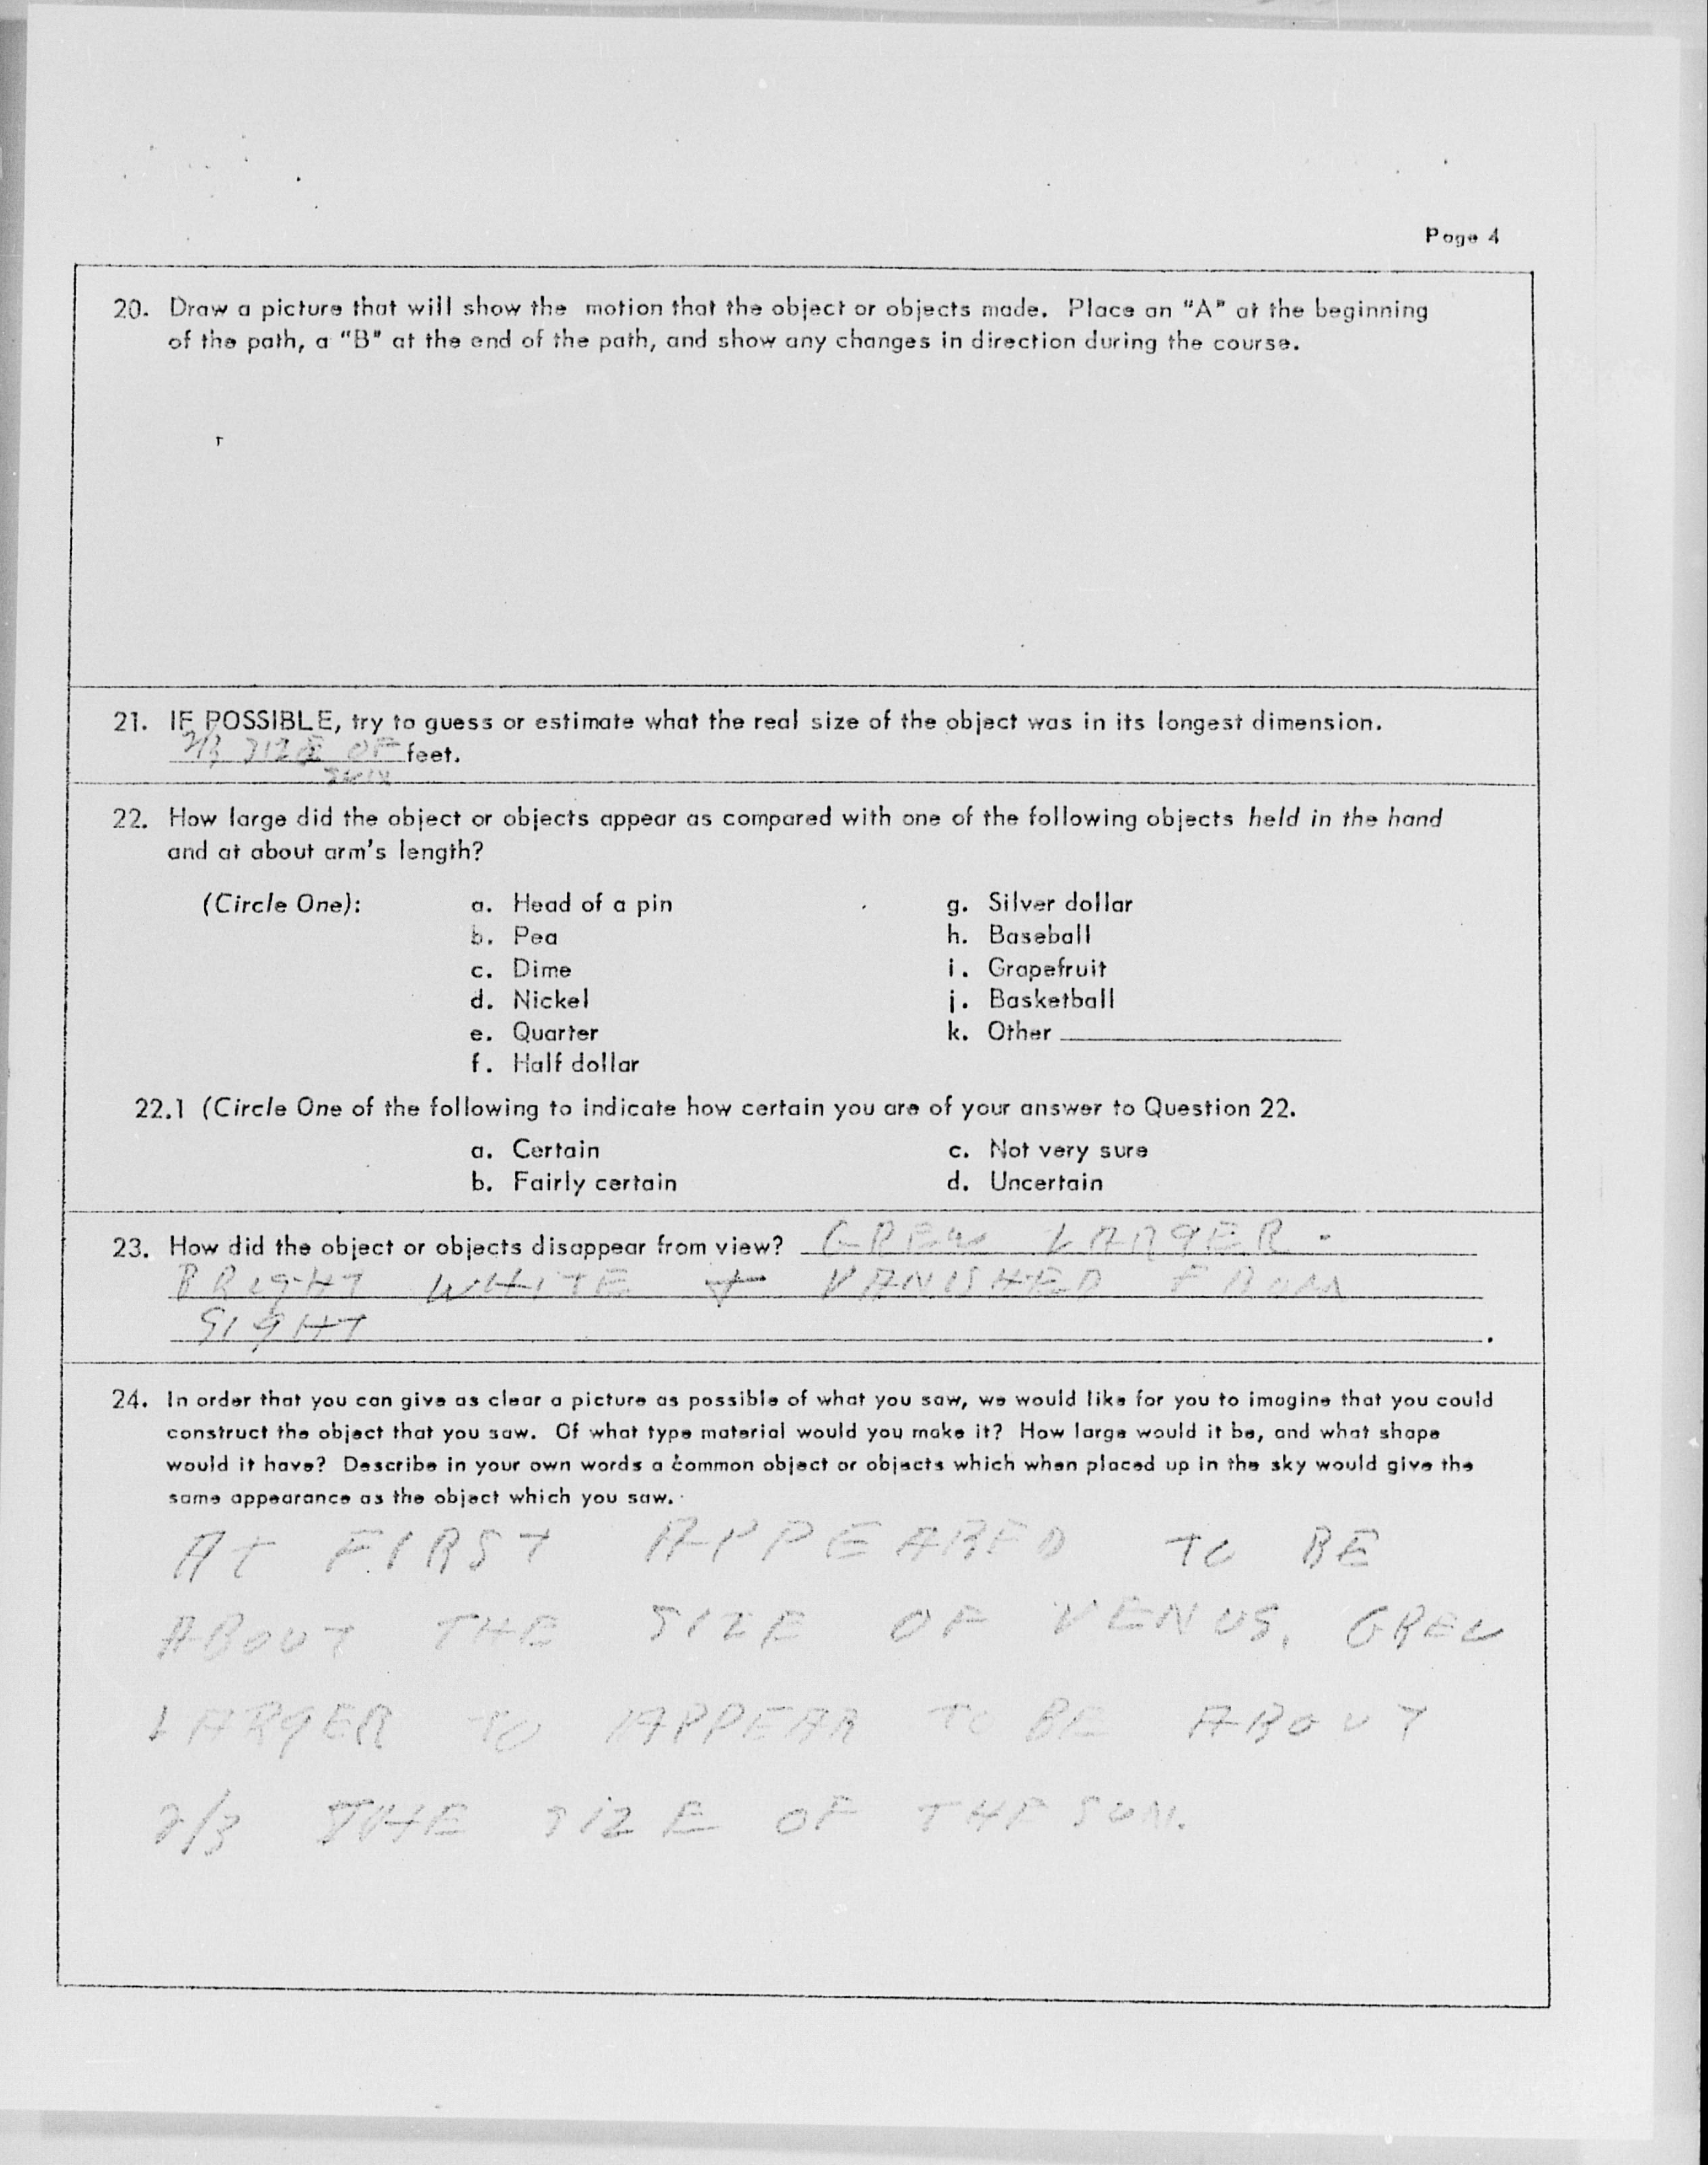 Page 4
20. Draw a picture that will show the motion that the object or objects made. Place an "A" at the beginning
of the path, a "B" at the end of the path, and show any changes in direction during the course.
21. IF POSSIBLE, try to guess or estimate what the real size of the object was in its longest dimension.
2/3 SIZE OF feet.
SUN
22. How large did the object or objects appear as compared with one of the following objects held in the hand
and at about arm's length?
(Circle One): a. Head of a pin g. Silver dollar
b. Pea h. Baseball
c. Dime i. Grapefruit
d. Nickel j. Basketball
e. Quarter k. Other
f. Half dollar
22.1 (Circle One of the following to indicate how certain you are of your answer to Question 22.
a. Certain c. Not very sure
b. Fairly certain d. Uncertain
23. How did the object or objects disappear from view? GREW LARGER -
BRIGHT WHITE + VANISHED FROM
SIGHT .
24. In order that you can give as clear a picture as possible of what you saw, we would like for you to imagine that you could
construct the object that you saw. Of what type material would you make it? How large would it be, and what shape
would it have? Describe in your own words a common object or objects which when placed up in the sky would give the
same appearance as the object which you saw.
AT FIRST APPEARED TO BE
ABOUT THE SIZE OF VENUS. GREW
LARGER TO APPEAR TO BE ABOUT
2/3 THE SIZE OF THE SUN.